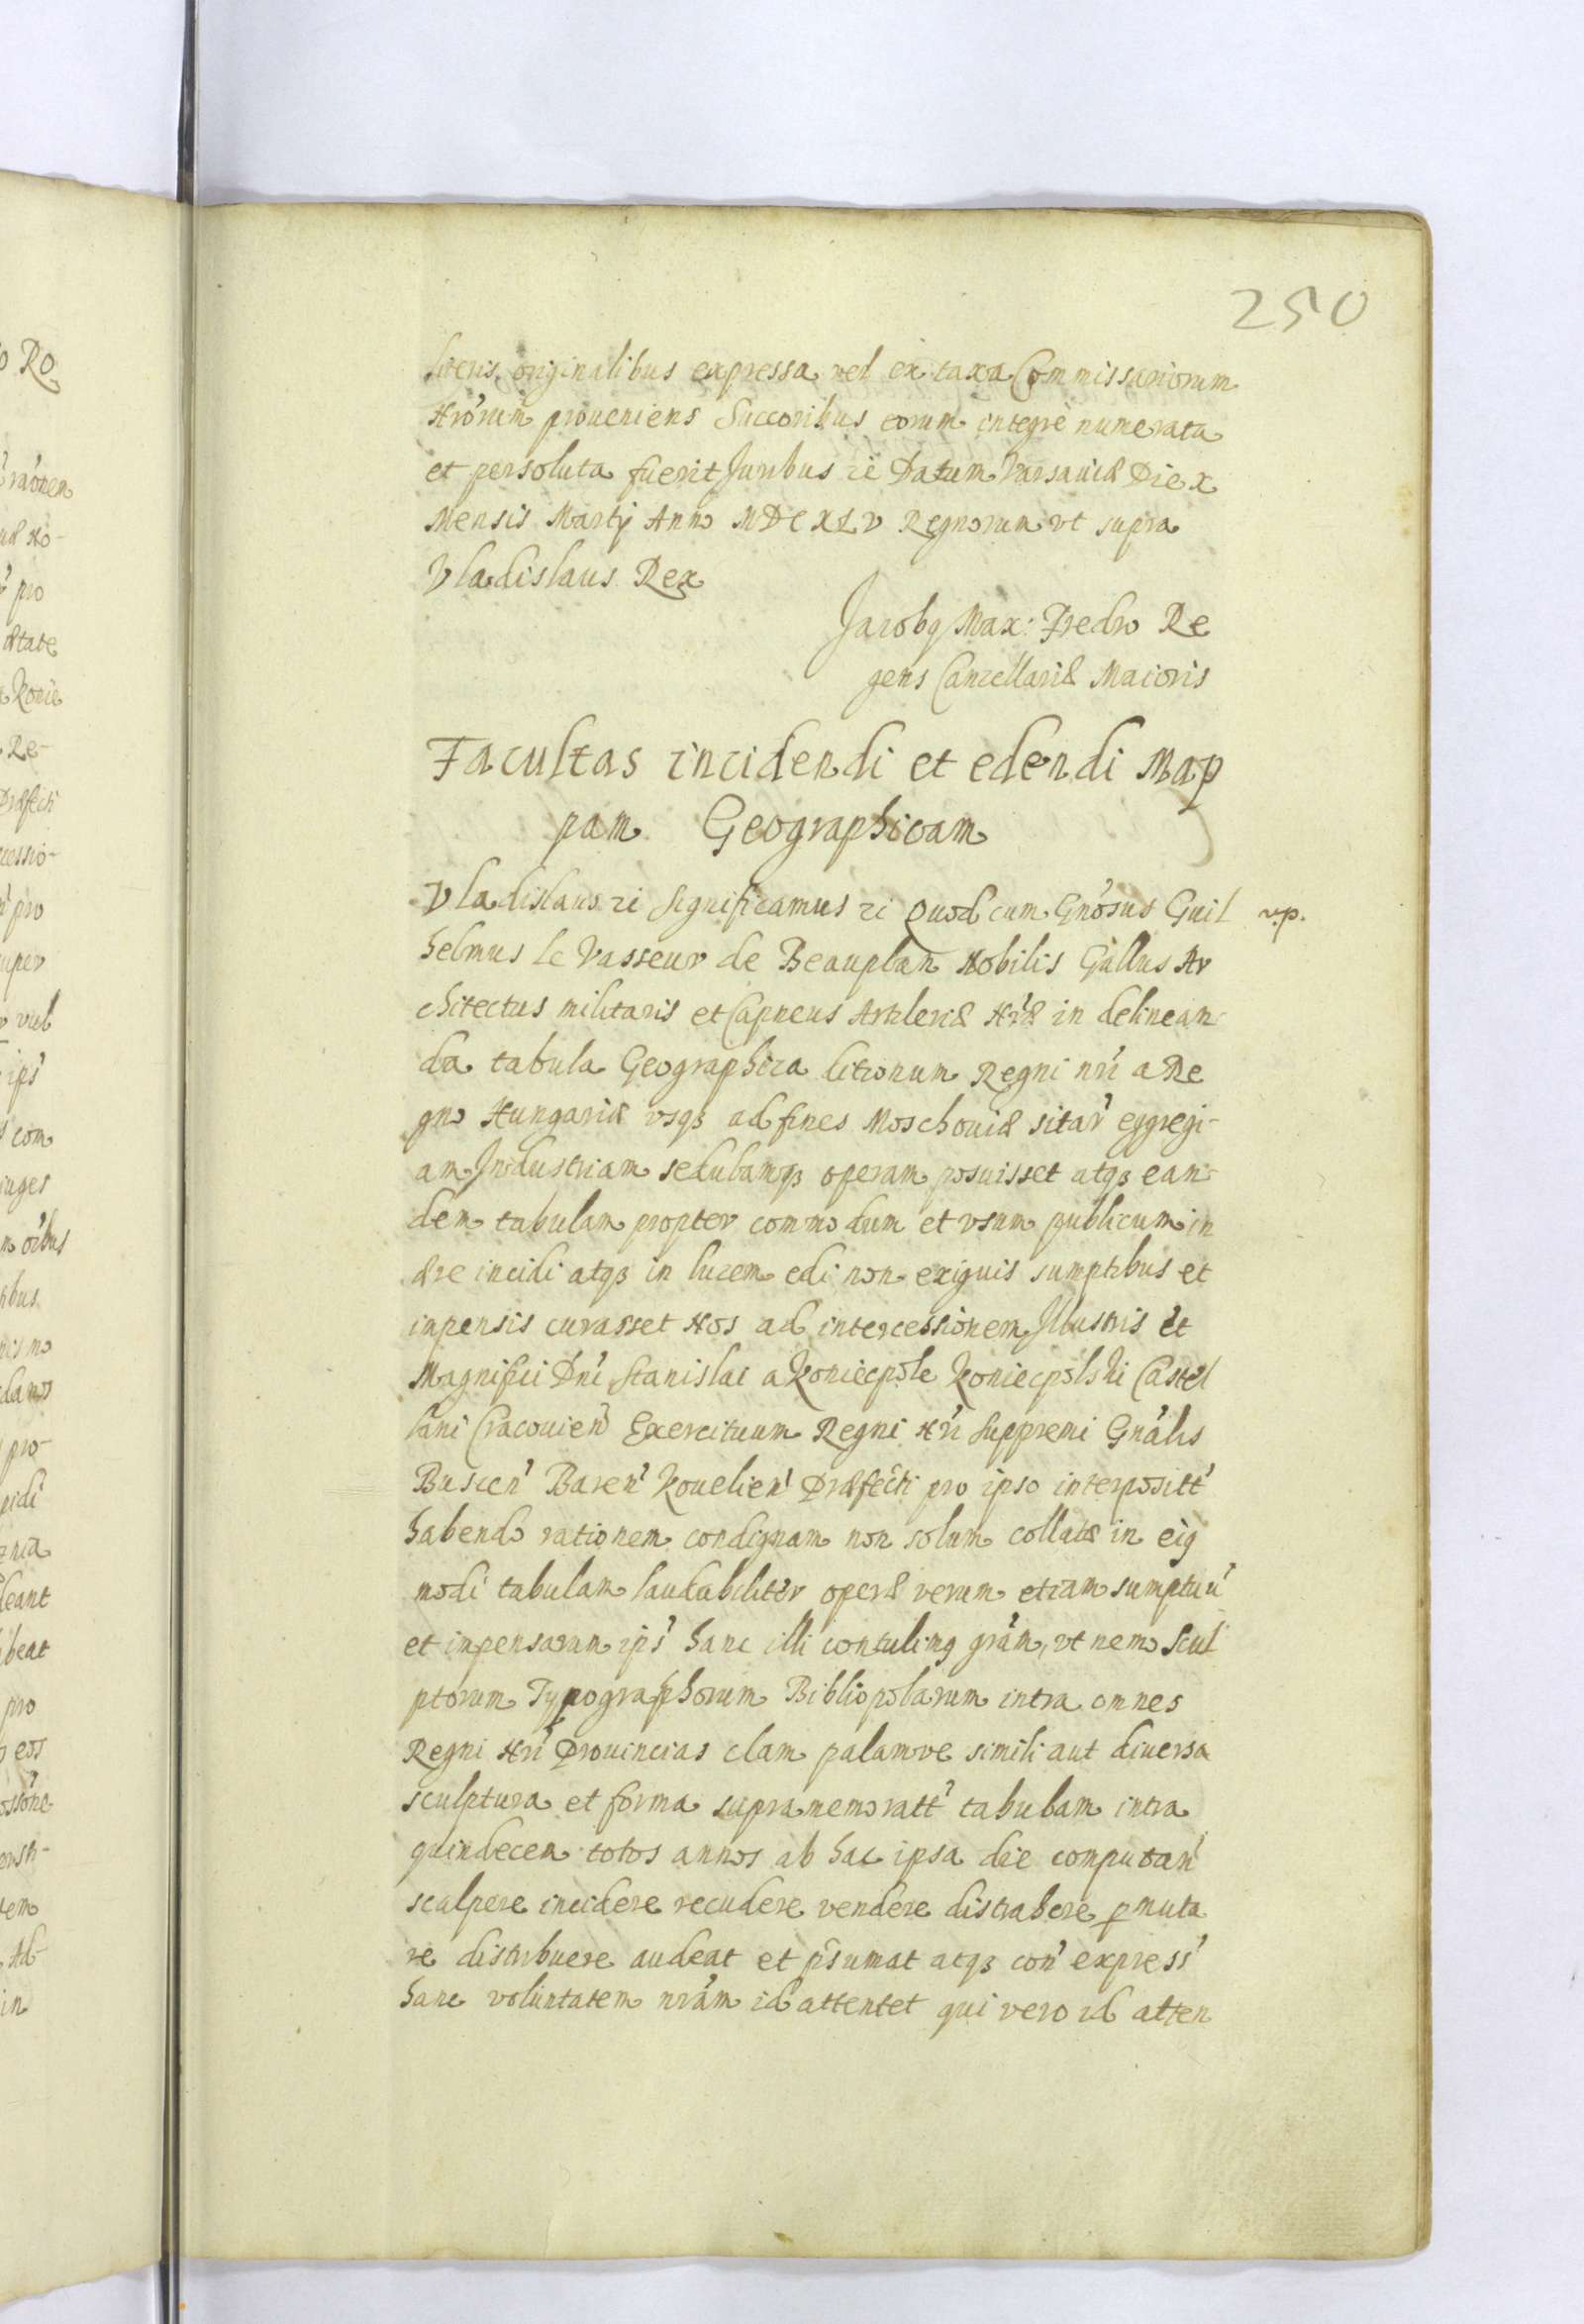 250
literis originalibus expressa vel ex taxa Commissariorum
Nrorum proueniens Succoribus eorum integre numerata
et persoluta fuerit Juribus zc Datum Varsauiæ Die X
Mensis Martij Anno MDCXLV Regnorum vt supra
Vladislaus Rex
Jacobq Max: Fredro Re
gens Cancellariæ Maioris
Facultas incidendi et edendi Map
pam Geographicam
Vladislaus zc Significamus zc Quod cum Gnosus Guil
v.p.
helmus le Vasseur de Beauplan Nobilis Gallus Ar
chitectus militaris et Capneus Artleriæ Nræ in delinean-
da tabula Geographica ditionum Regni nri a Re
gno Hungariæ vsqꝫ ad fines Moschouiæ sitar' eggregi-
am Industriam sedulamqꝫ operam posuisset atqꝫ ean-
dem tabulam propter commodum et vsum publicum in
ære incidi atqꝫ in lucem edi non exiguis sumptibus et
impensis curasset Nos ad intercessionem Illustris et
Magnifici Dni Stanislai a Koniecpole Koniecpolski Castel
lani Cracouien' Exercituum Regni Nri Suppremi Gnalis
Buscen' Baren' Kouelien' Præfecti pro ipso interpositt'
habendo rationem condignam non solum collatæ in eiq
modi tabulam laudabiliter operæ verum etiam sumptuu'
et impensarum ips' hanc illi contulimq gram, vt nemo Scul
ptorum Typographorum Bibliopolarum intra omnes
Regni Nri Prouincias clam palamve simili aut diuersa
sculptura et forma supramemoratt' tabulam intra
quindecem totos annos ab hac ipsa die computan'
scalpere incidere recudere vendere distrahere ꝑmuta
re distribuere audeat et psumat atqꝫ con' express'
hanc voluntatem nram id attentet qui vero id atten